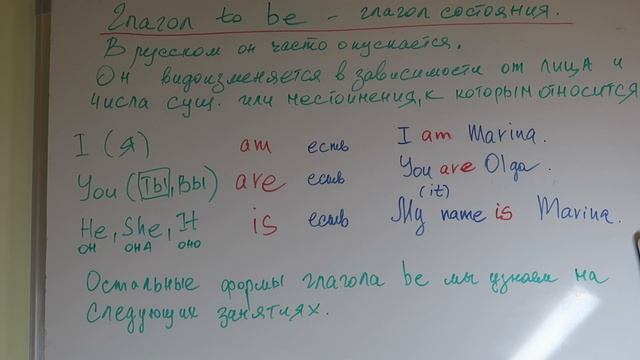 Глагол to be – глагол состояния.
В русском он часто опускается.
Он видоизменяется в зависимости от лица и
числа сущ. или местоимения, к которым относится
I (я) am есть I am Marina.
You (ты, вы) are есть You are Olga.
(it)
He, She, It is есть My name is Marina.
он она оно
Остальные формы глагола be мы узнаем на
следующих занятиях.